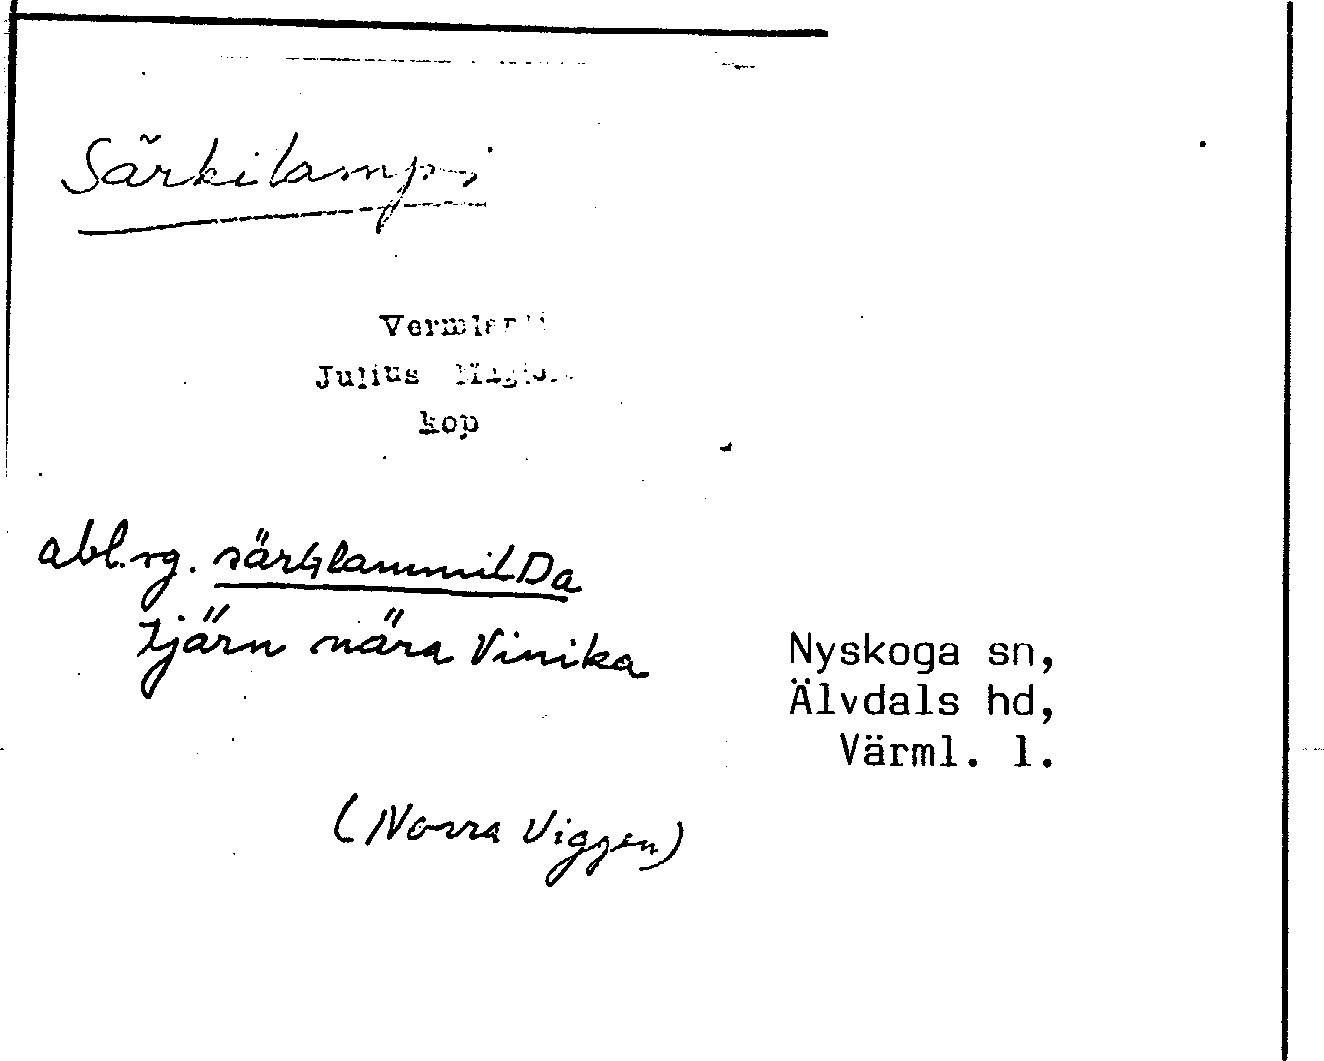 Särkilampi
Julius
kop
abl. sg. särGlammilDa
tjärn nära Vinika
Nyskoga sn,
Älvdals hd,
Värml. l.
(Norra Viggen)